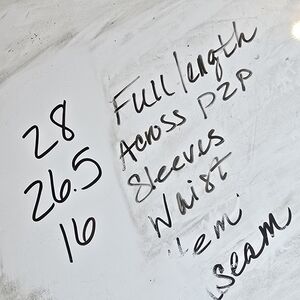 28 Full length
26.5 Across P2P
16 Sleeves
Waist
Hem
seam